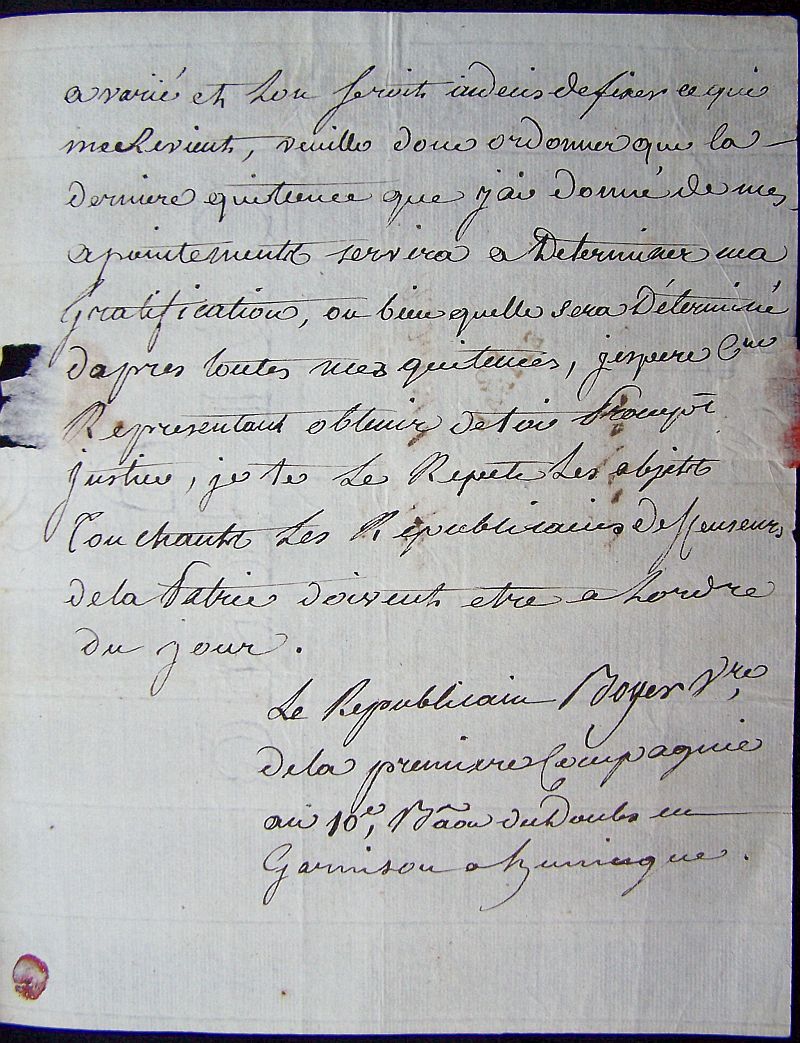 a varié et lon seroit indecis de fixer ce qui
me Revient, veuille donc ordonner que la
derniere quitence que j'ai donné de mes
apointements servira a Determiner ma
Gratification, ou bien quelle sera Déterminé
dapres toutes mes quitences, jespere Cen
Représentant obtenir de toi Prompt
justice, je te Le Repete Les objets
Touchants Les Républicains deffenseurs
de la Patrie doivent etre a Lordre
Du jour.
Le Republicain Boyer
de la premiere Compagnie
au 10e, Bãon du Doubs en
Garnison a huningue.